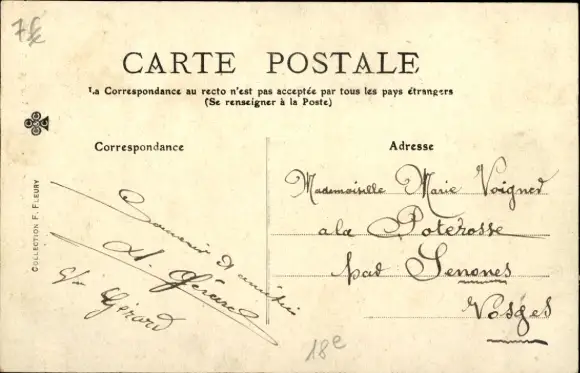 CARTE POSTALE
La Correspondance au recto n'est pas acceptée par tous les pays étrangers
(Se renseigner à la Poste)
Correspondance
Souvenir d'amitié
Gérard
Gérard
Adresse
Mademoiselle Marie Voigned
a la Poterosse
pad Senones
Vosges
COLLECTION F. FLEURY
18e